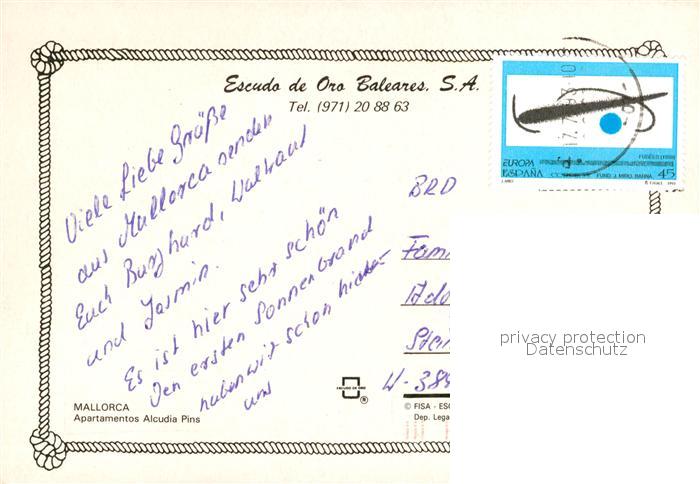 Escudo de Oro Baleares, S.A.
Tel. (971) 20 88 63
Viele Liebe Grüße
aus Mallorca senden
Euch Burghard, Waltraud
und Jasmin.
Es ist hier sehr schön
Den ersten Sonnenbrand
haben wir schon hinter
uns
BRD
Fam
Ado
Stei
W-384
EUROPA
ESPAÑA
CORREOS
FUND. J. MIRO. BARNA
45
privacy protection
Datenschutz
ESCUDO DE ORO
®
MALLORCA
Apartamentos Alcudia Pins
© FISA - ESC
Dep. Lega